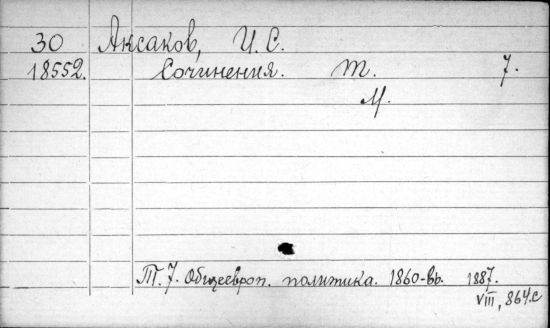 30 Аксаков, И. С.
18552. Сочинения. Т. 7.
М.
Т. 7. Общеевроп. политика. 1860-въ. 1887.
VIII, 864 с